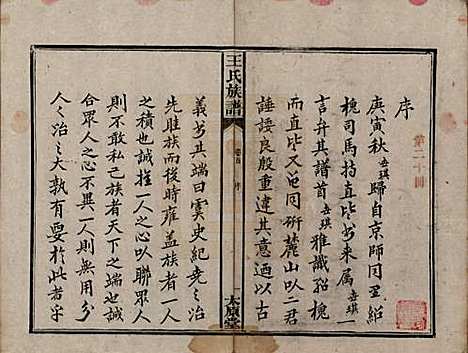 序
庚寅秋世琪歸自京師同里紹
槐司馬持直毗書來属世琪一
言弁其譜首世琪雅識紹槐
而直毗又曾同研麓山以二君
諈諉良殷重違其意迺以古
王氏族譜
卷首 序
一 太原堂
義書其端曰虞史紀堯之治
先睦族而後時雍蓋族者一人
之積也誠推一人之心以聯眾人
則不敢私己族者天下之端也誠
合眾人之心不異一人則無用分
人人之治之大孰有要於此者乎
第二十冊